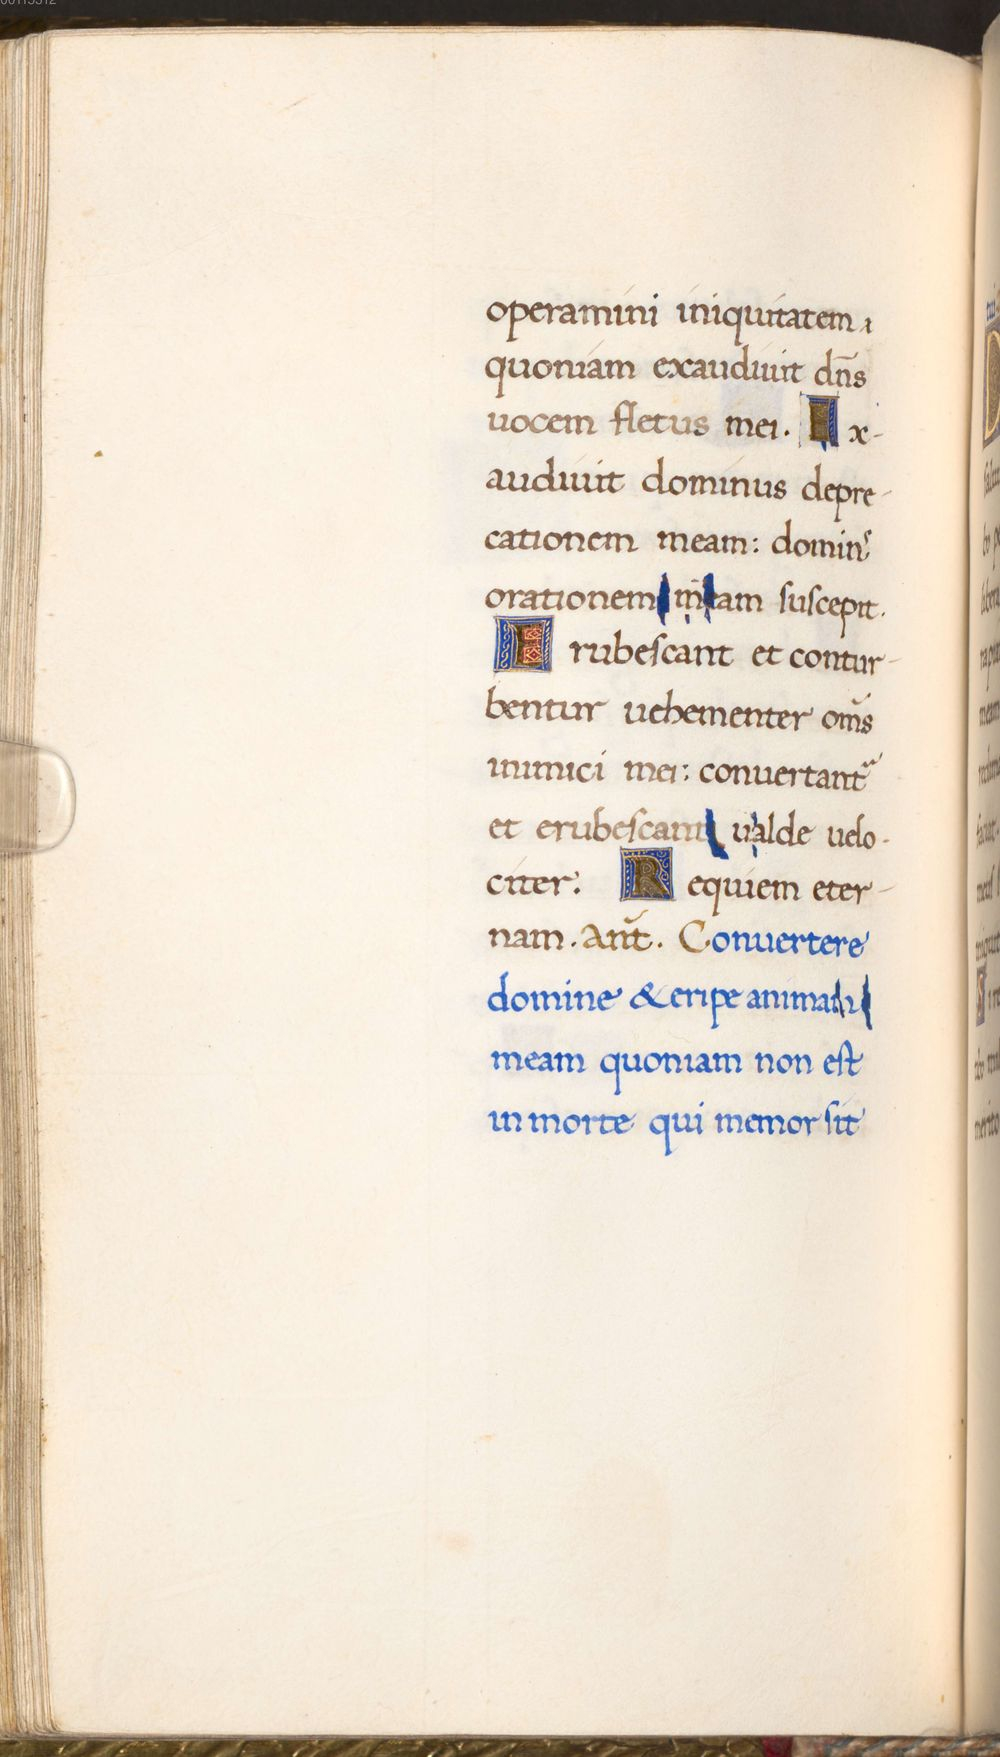 operamini iniquitatem
quoniam exaudiuit dn̄s
uocem fletus mei. Ex-
audiuit dominus depre-
cationem meam: dominꝰ
orationem meam suscepit.
Erubescant et contur-
bentur uehementer om̄s
inimici mei: conuertant᷑
et erubescant ualde uelo-
citer. Requiem eter-
nam. Ant̄. Conuertere
domine & eripe animam
meam quoniam non est
in morte qui memor sit